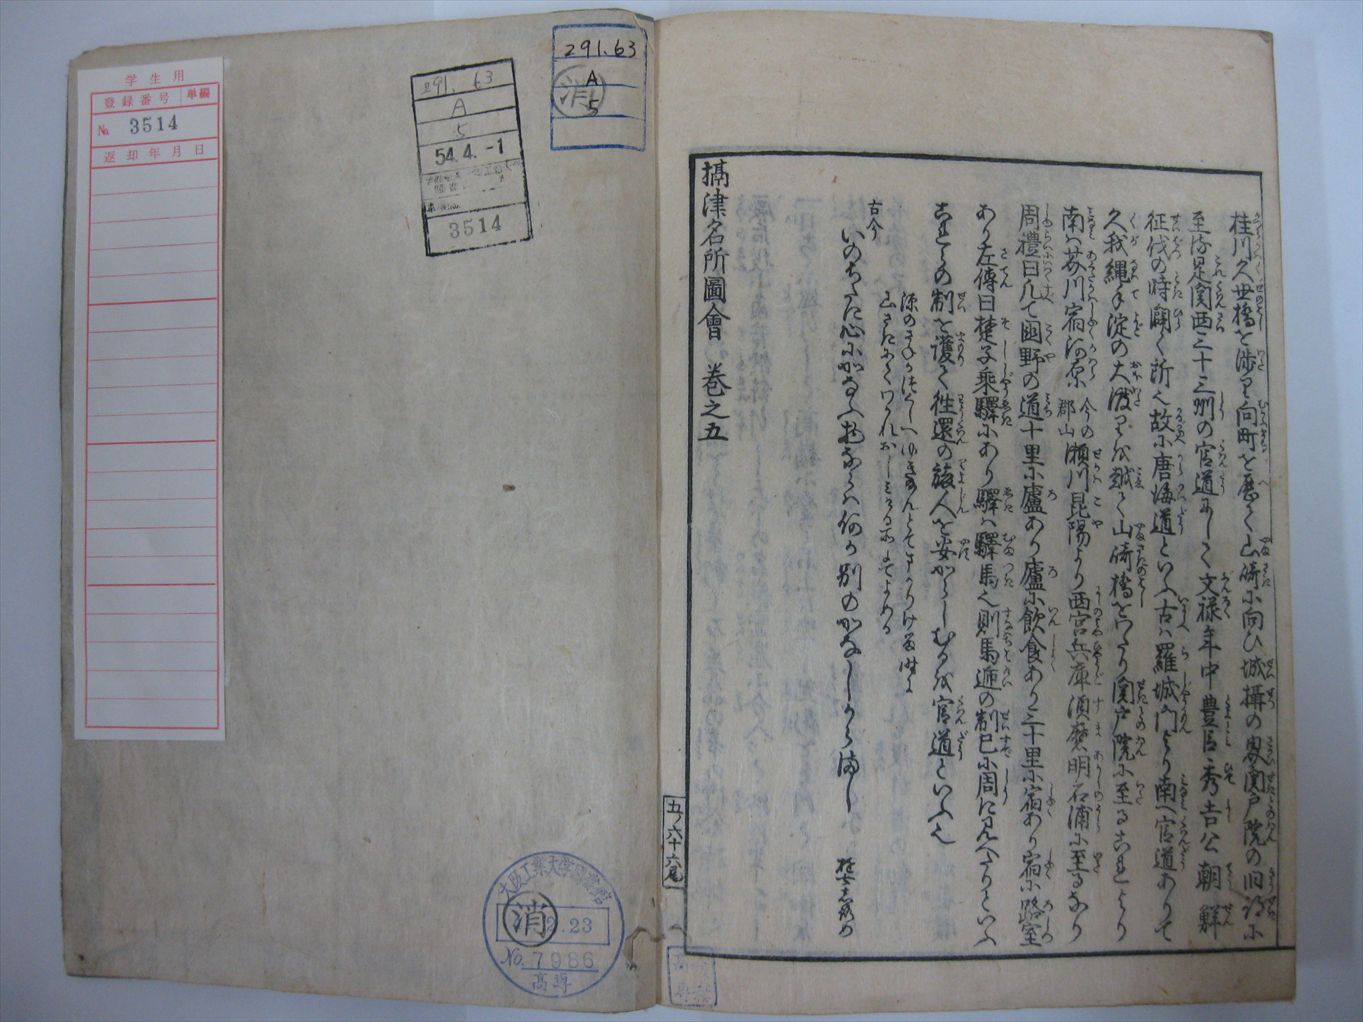 桂川久世橋を渉り向町を歴て山崎に向ひ城攝の界関戸院の旧跡に
至る是関西三十三州の官道にして文禄年中豊臣秀吉公朝鮮
征伐の時開く所也故に唐海道といふ古ハ羅城門より南へ官道ありて
久我縄手淀の大渡りを越て山崎橋をわたり関戸院に至るこれより
南ハ芥川宿河原
今の
郡山
瀬川昆陽より西宮兵庫須磨明石浦に至るなり
周禮曰凡て國野の道十里に廬あり廬に飲食あり三十里に宿あり宿に路室
あり左傳曰楚子乗驛にあり驛ハ驛馬也則馬逓の制已に周に見へたりといふ
これらの制を護て徃還の旅人を安からしむるを官道といふ也
古今
源のさねがつくしへゆあみんとてまかりける時に
山さきにてわかれおしみける所にてよめる
いのちだに心にかなふ物ならハ何か別のかなしからまし
攝津名所圖會 巻之五
五ノ六十六尾
学生用
登録番号
単編
№ 3514
返却年月日
291.63
A
5
54.4.-1
3514
291.63
A
5
消
大阪工業大学図書館
消
2.23
No. 7986
高専